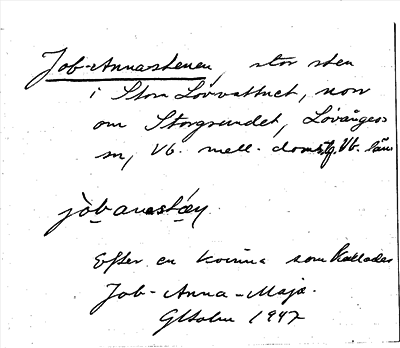 Job-Annastenen, stor sten
i Stora Lövvattnet, norr
om Storgrundet, Lövångers
sn, Vb. mell. domsg, Vb. län
Efter en kvinna som kallades
Job-Anna-Maja.
1947